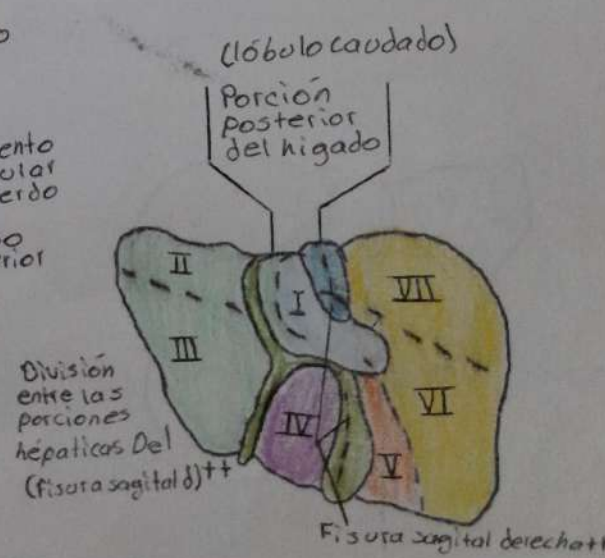 (lóbulo caudado)
Porción
posterior
del higado
II
III
I
VII
VI
IV
V
División
entre las
porciones
hépaticas Del
(fisura sagital d)++
Fisura sagital derecha++